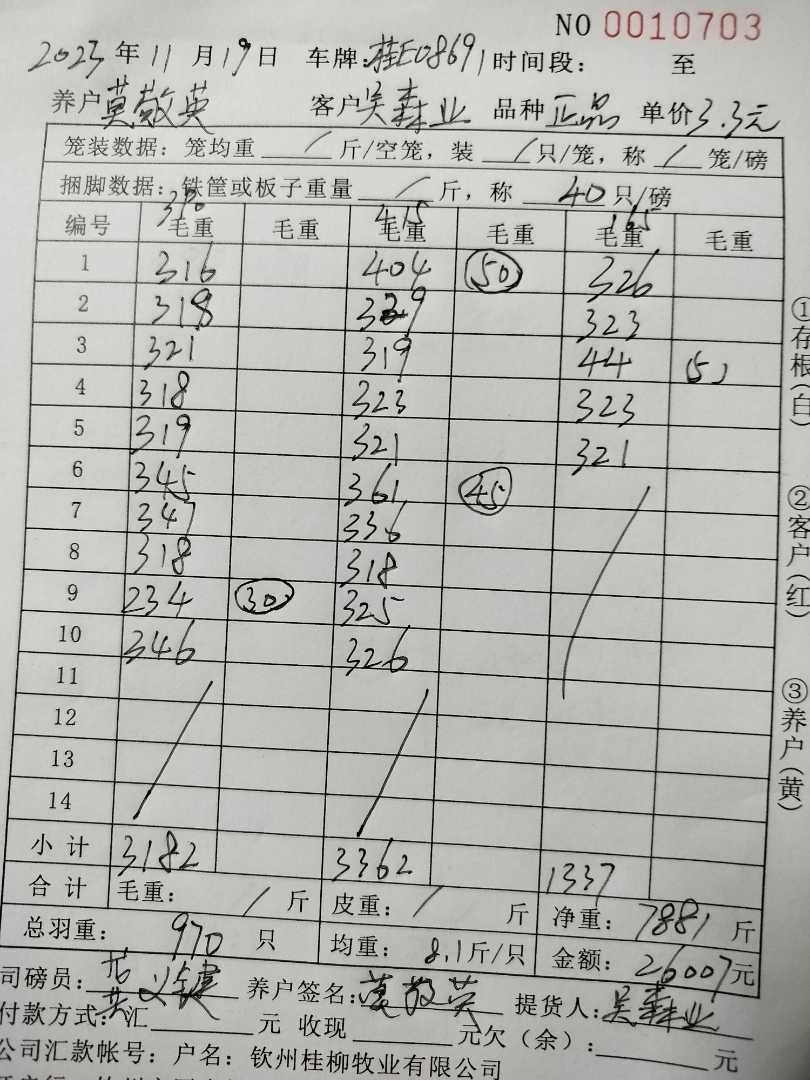 NO 0010703
2023年11月19日 车牌:桂E08691 时间段: 至
养户莫敬英 客户吴森业 品种正品 单价3.3元
笼装数据:笼均重 / 斤/空笼,装 / 只/笼,称 / 笼/磅
捆脚数据:铁筐或板子重量 / 斤,称 40只/磅
390 415 165
编号 毛重 毛重 毛重 毛重 毛重 毛重
1 316 404 50 326
2 318 329 323
3 321 319 44 5
4 318 323 323
5 319 321 321
6 345 361 45
7 347 336
8 318 318
9 234 30 325
10 346 326
11
12
13
14
小计 3182 3362 1337
合计 毛重: / 斤 皮重: / 斤 净重:7881斤
总羽重: 970 只 均重:8.1斤/只 金额:26007元
司磅员: 养户签名:莫敬英 提货人:吴森业
付款方式:汇 元 收现 元欠(余): 元
公司汇款帐号:户名:钦州桂柳牧业有限公司
①存根(白)
②客户(红)
③养户(黄)